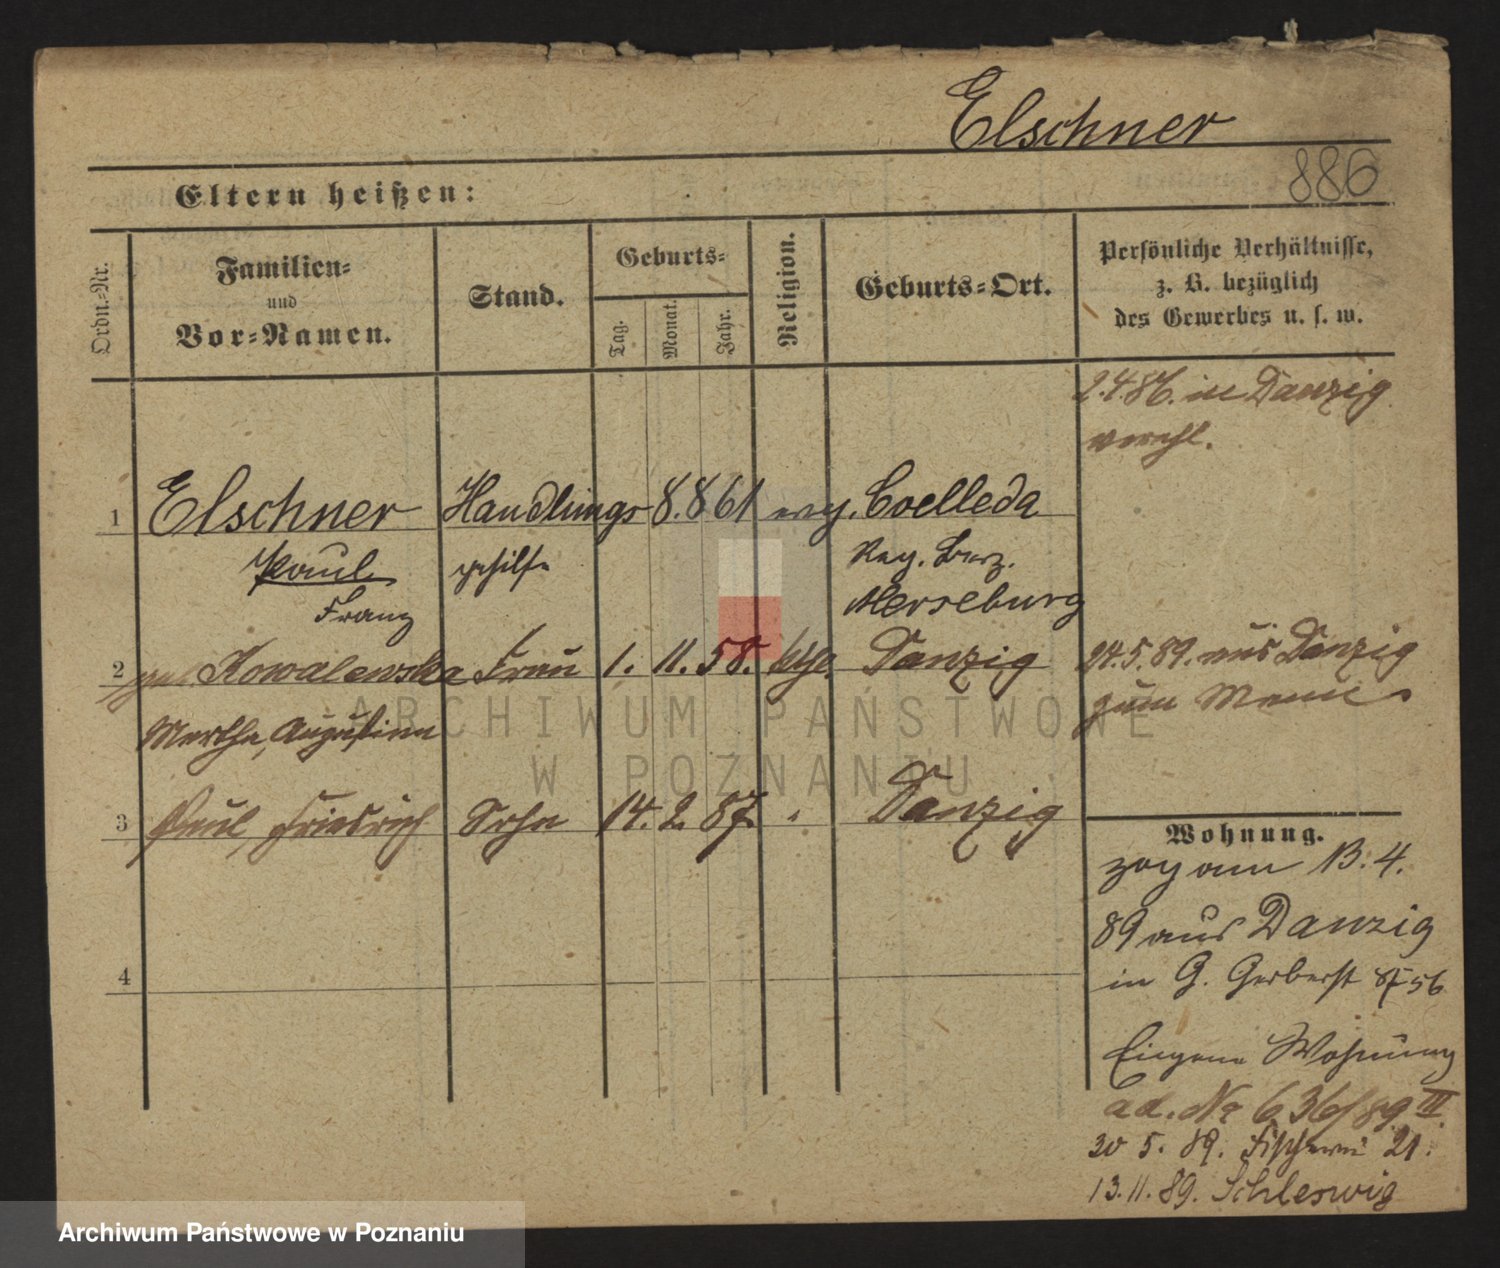 Elschner
886
Eltern heißen:
Ordn.-Nr.
Familien-
und
Vor-Namen.
Stand.
Geburts-
Tag.
Monat.
Jahr.
Religion.
Geburts-Ort.
Persönliche Verhältnisse,
z. B. bezüglich
des Gewerbes u. s. w.
2.4.86. in Danzig
verehl.
1 Elschner Handlungs 8.8 61 evg. Coelleda
Paul gehilfe Reg. Bez.
Franz Merseburg
2 geb. Kowalewska Frau 1. 11. 58. kth. Danzig 24.5.89. aus Danzig
Martha, Augustine zum Manne
ARCHIWUM PAŃSTWOWE
W POZNANIU
3 Paul, Friedrich Sohn 14. 2. 87. Danzig
Wohnung.
zog am 13. 4.
89 aus Danzig
in G. Gerberst 56
4
Eigene Wohnung
ad. No 636/89 III.
30 5. 89. Fischerei 21.
13.11.89. Schleswig
Archiwum Państwowe w Poznaniu